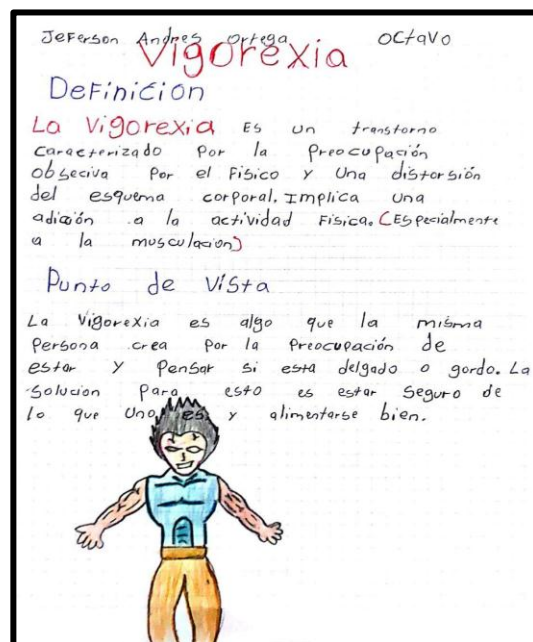 Jeferson Andres Ortega Octavo
Vigorexia
Definición
La Vigorexia Es un transtorno
caracterizado por la Preocupación
obseciva por el Fisico y Una distorsión
del esquema corporal. Implica una
adicción a la actividad Fisica. (Especialmente
a la musculacion)
Punto de Vista
La Vigorexia es algo que la misma
Persona crea por la Preocupación de
estar y Pensar si esta delgado o gordo. La
Solucion Para esto es estar Seguro de
lo que uno es y alimentarse bien.